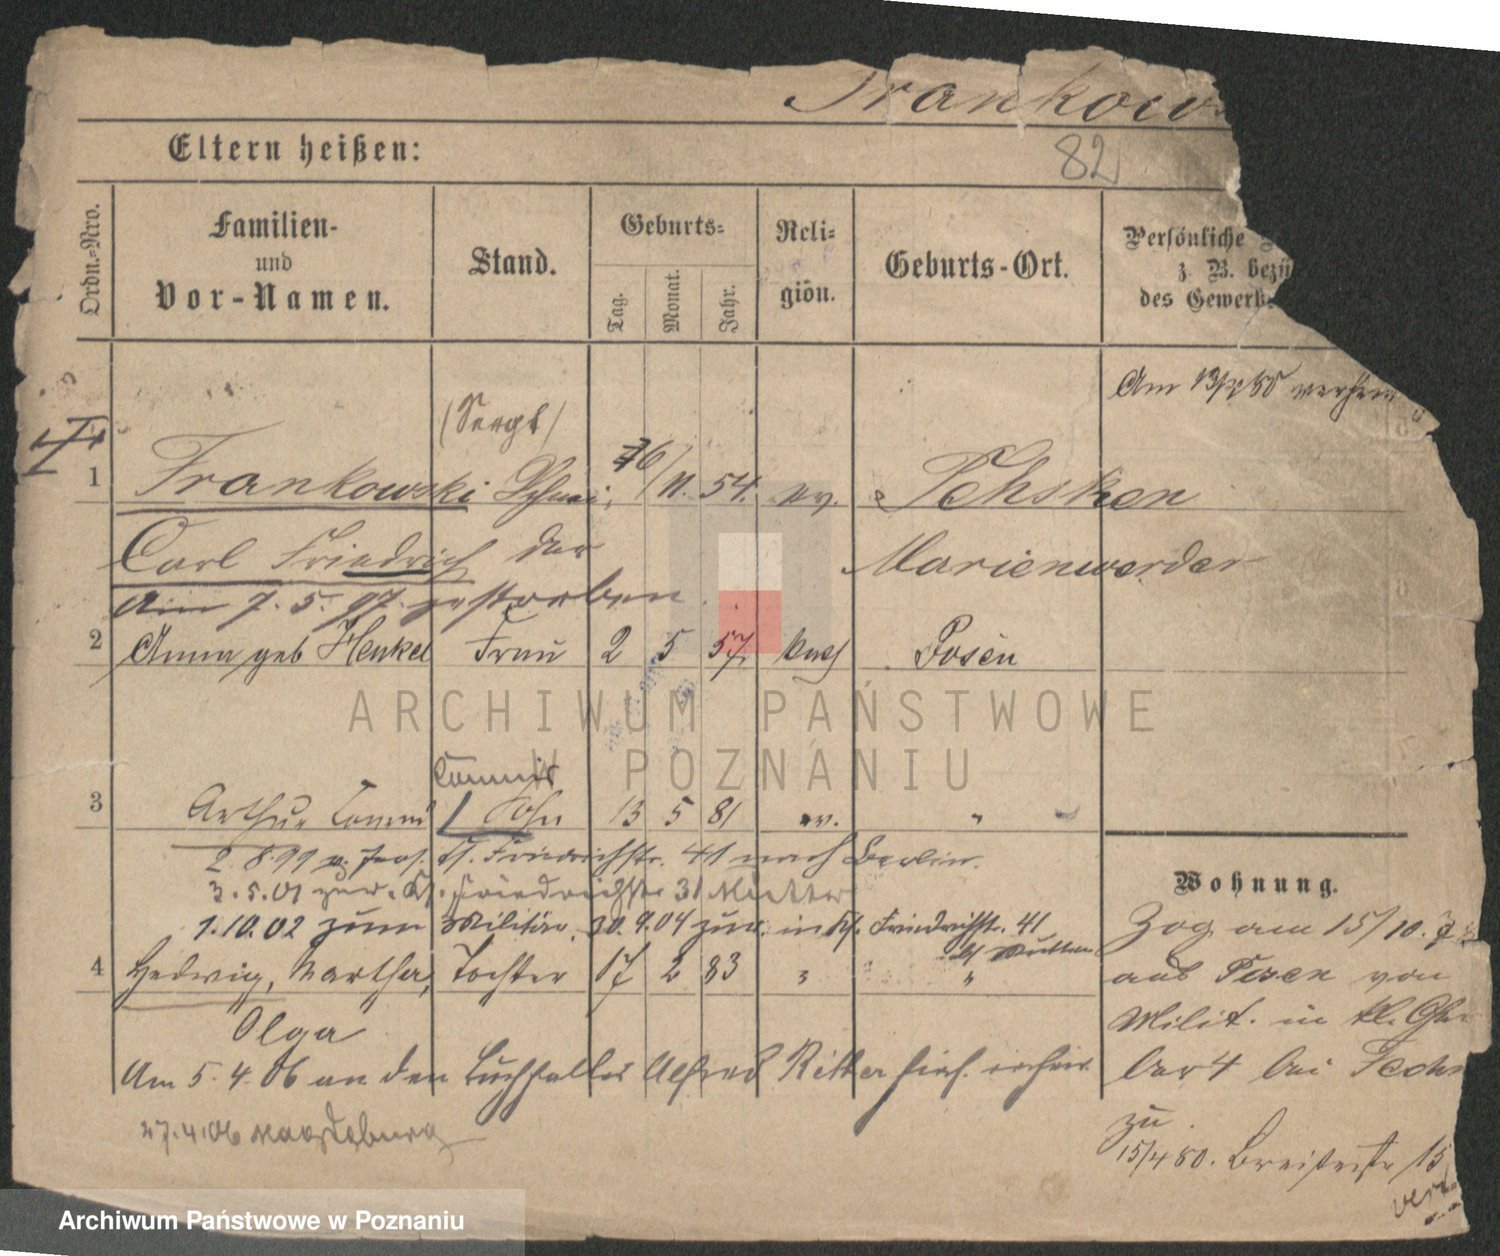 Frankows
82
Eltern heißen:
Ordn.-Nro.
Familien-
und
Vor-Namen.
Stand.
Geburts-
Tag.
Monat.
Jahr.
Reli-
gion.
Geburts-Ort.
Persönliche
z. B. bezü
des Gewerb
Am 13/4 80
(Sergt)
1 Frankowski Schnei- 11. 54. ev. Tehsken
Carl Friedrich der Marienwerder
Am 7. 5. 97. gestorben
2 Anna geb Henkel Frau 2 5 57. kath Posen
Commis
3 Arthur Conrad Sohn 13 5 81 ev. "
2 8.99 v. hier. Kl. Friedrichstr. 41 nach Berlin.
3.5.01 zur. Kl. Friedrichstr 31 Mutter
1.10.02 zum Militär. 30.9.04 zur. in Kl. Friedrichstr. 41
b/ Mutter
4 Hedwig, Martha, Tochter 17 2 83 " "
Olga
Am 5.4.06 an den Buchhalter Alfred Ritter hier. verheir.
27.4.06 Magdeburg
Wohnung.
Zog am 15/10.
aus Posen von
Milit. in kl.
ber 4 bei
zu
15/4 80. Breitestr 15
verz
ARCHIWUM PAŃSTWOWE
W POZNANIU
Archiwum Państwowe w Poznaniu